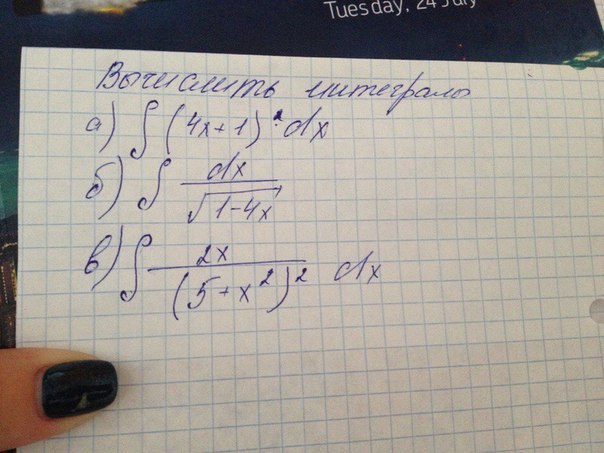 Tuesday, 24 July
Вычислить интегралы
а) ∫ (4x+1) · dx
б) ∫ dx / √(1-4x)
в) ∫ 2x / (5+x²)² dx